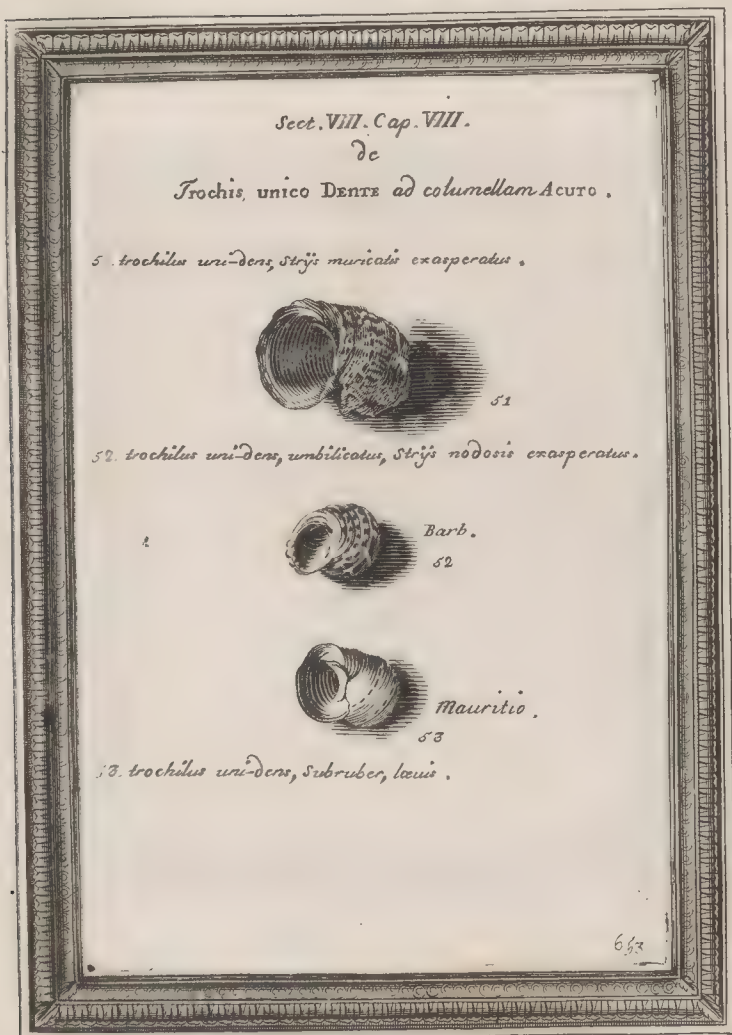 Sect. VIII. Cap. VIII.
de
Trochis, unico DENTE ad columellam ACUTO.
5 . trochilus uni-dens, Strijs muricatis exasperatus.
51
52. trochilus uni-dens, umbilicatus, Strijs nodosis exasperatus.
Barb.
52
Mauritio.
53
53. trochilus uni-dens, Subruber, lævis.
653